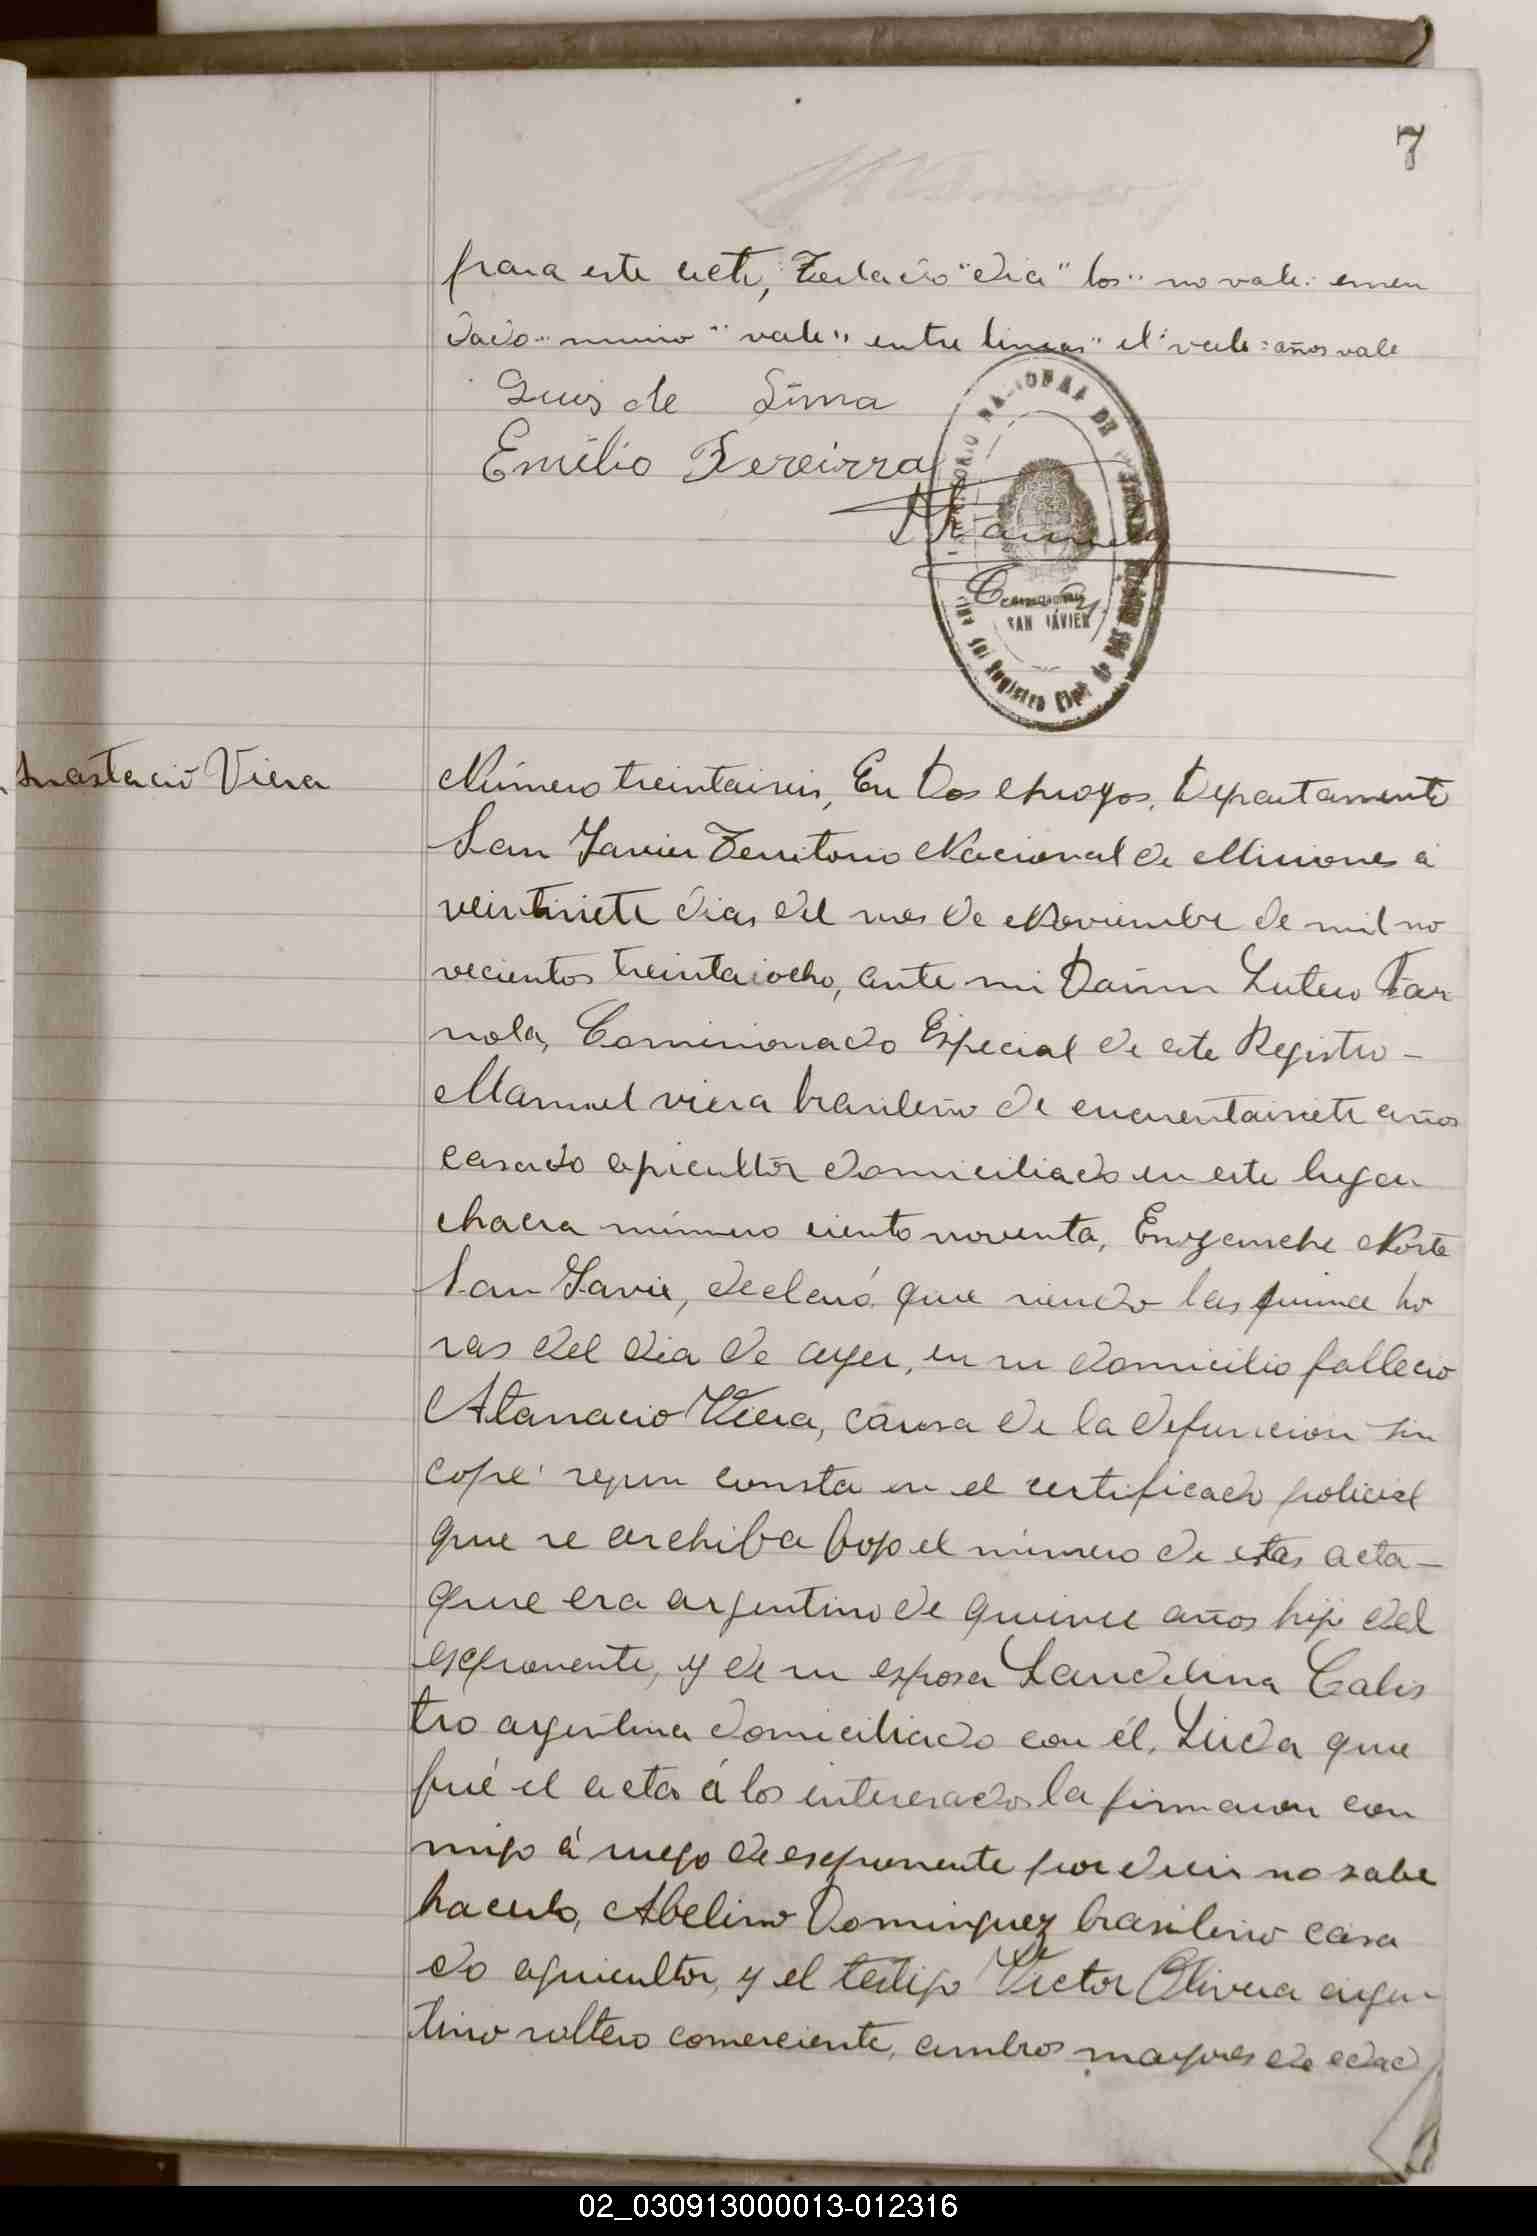 7
para este acto, Testado "dia" los" no vale: enmen
dado" mimo" vale" entre lineas" el vale = años vale
Luis de Lima
Emilio Fereirra
NACIONAL DE
SAN JAVIER
del Registro Civil de DOS
Anastacio Viera
Número treintaiseis, En Dos Arroyos, Departamento
San Javier Territorio Nacional de Misiones á
veintisiete dias del mes de Noviembre de mil no
vecientos treintaiocho, ante mi Lutero Far
nola, Comisionado Especial de este Registro —
Manuel viera brasileño de cincuentaisiete años
casado agricultor domiciliado en este lugar
chacra número ciento noventa, Ensanche Norte
San Javier, declaró que siendo las quince ho
ras del dia de ayer, en su domicilio fallecio
Atanacio Viera, causa de la defuncion sin
cope segun consta en el certificado policial
que se archiba bajo el número de estas acta —
que era argentino de quince años hijo del
exponente, y de su esposa Laudelina Calis
tro argentina domiciliado con él, Leida que
fué el acta á los interesados la firmaron con
migo á ruego de exponente por decir no sabe
hacerlo, Abelino Dominguez brasileño casa
do agricultor, y el testigo Victor Olivera argen
tino soltero comerciente, ambos mayores de edad
02_030913000013-012316